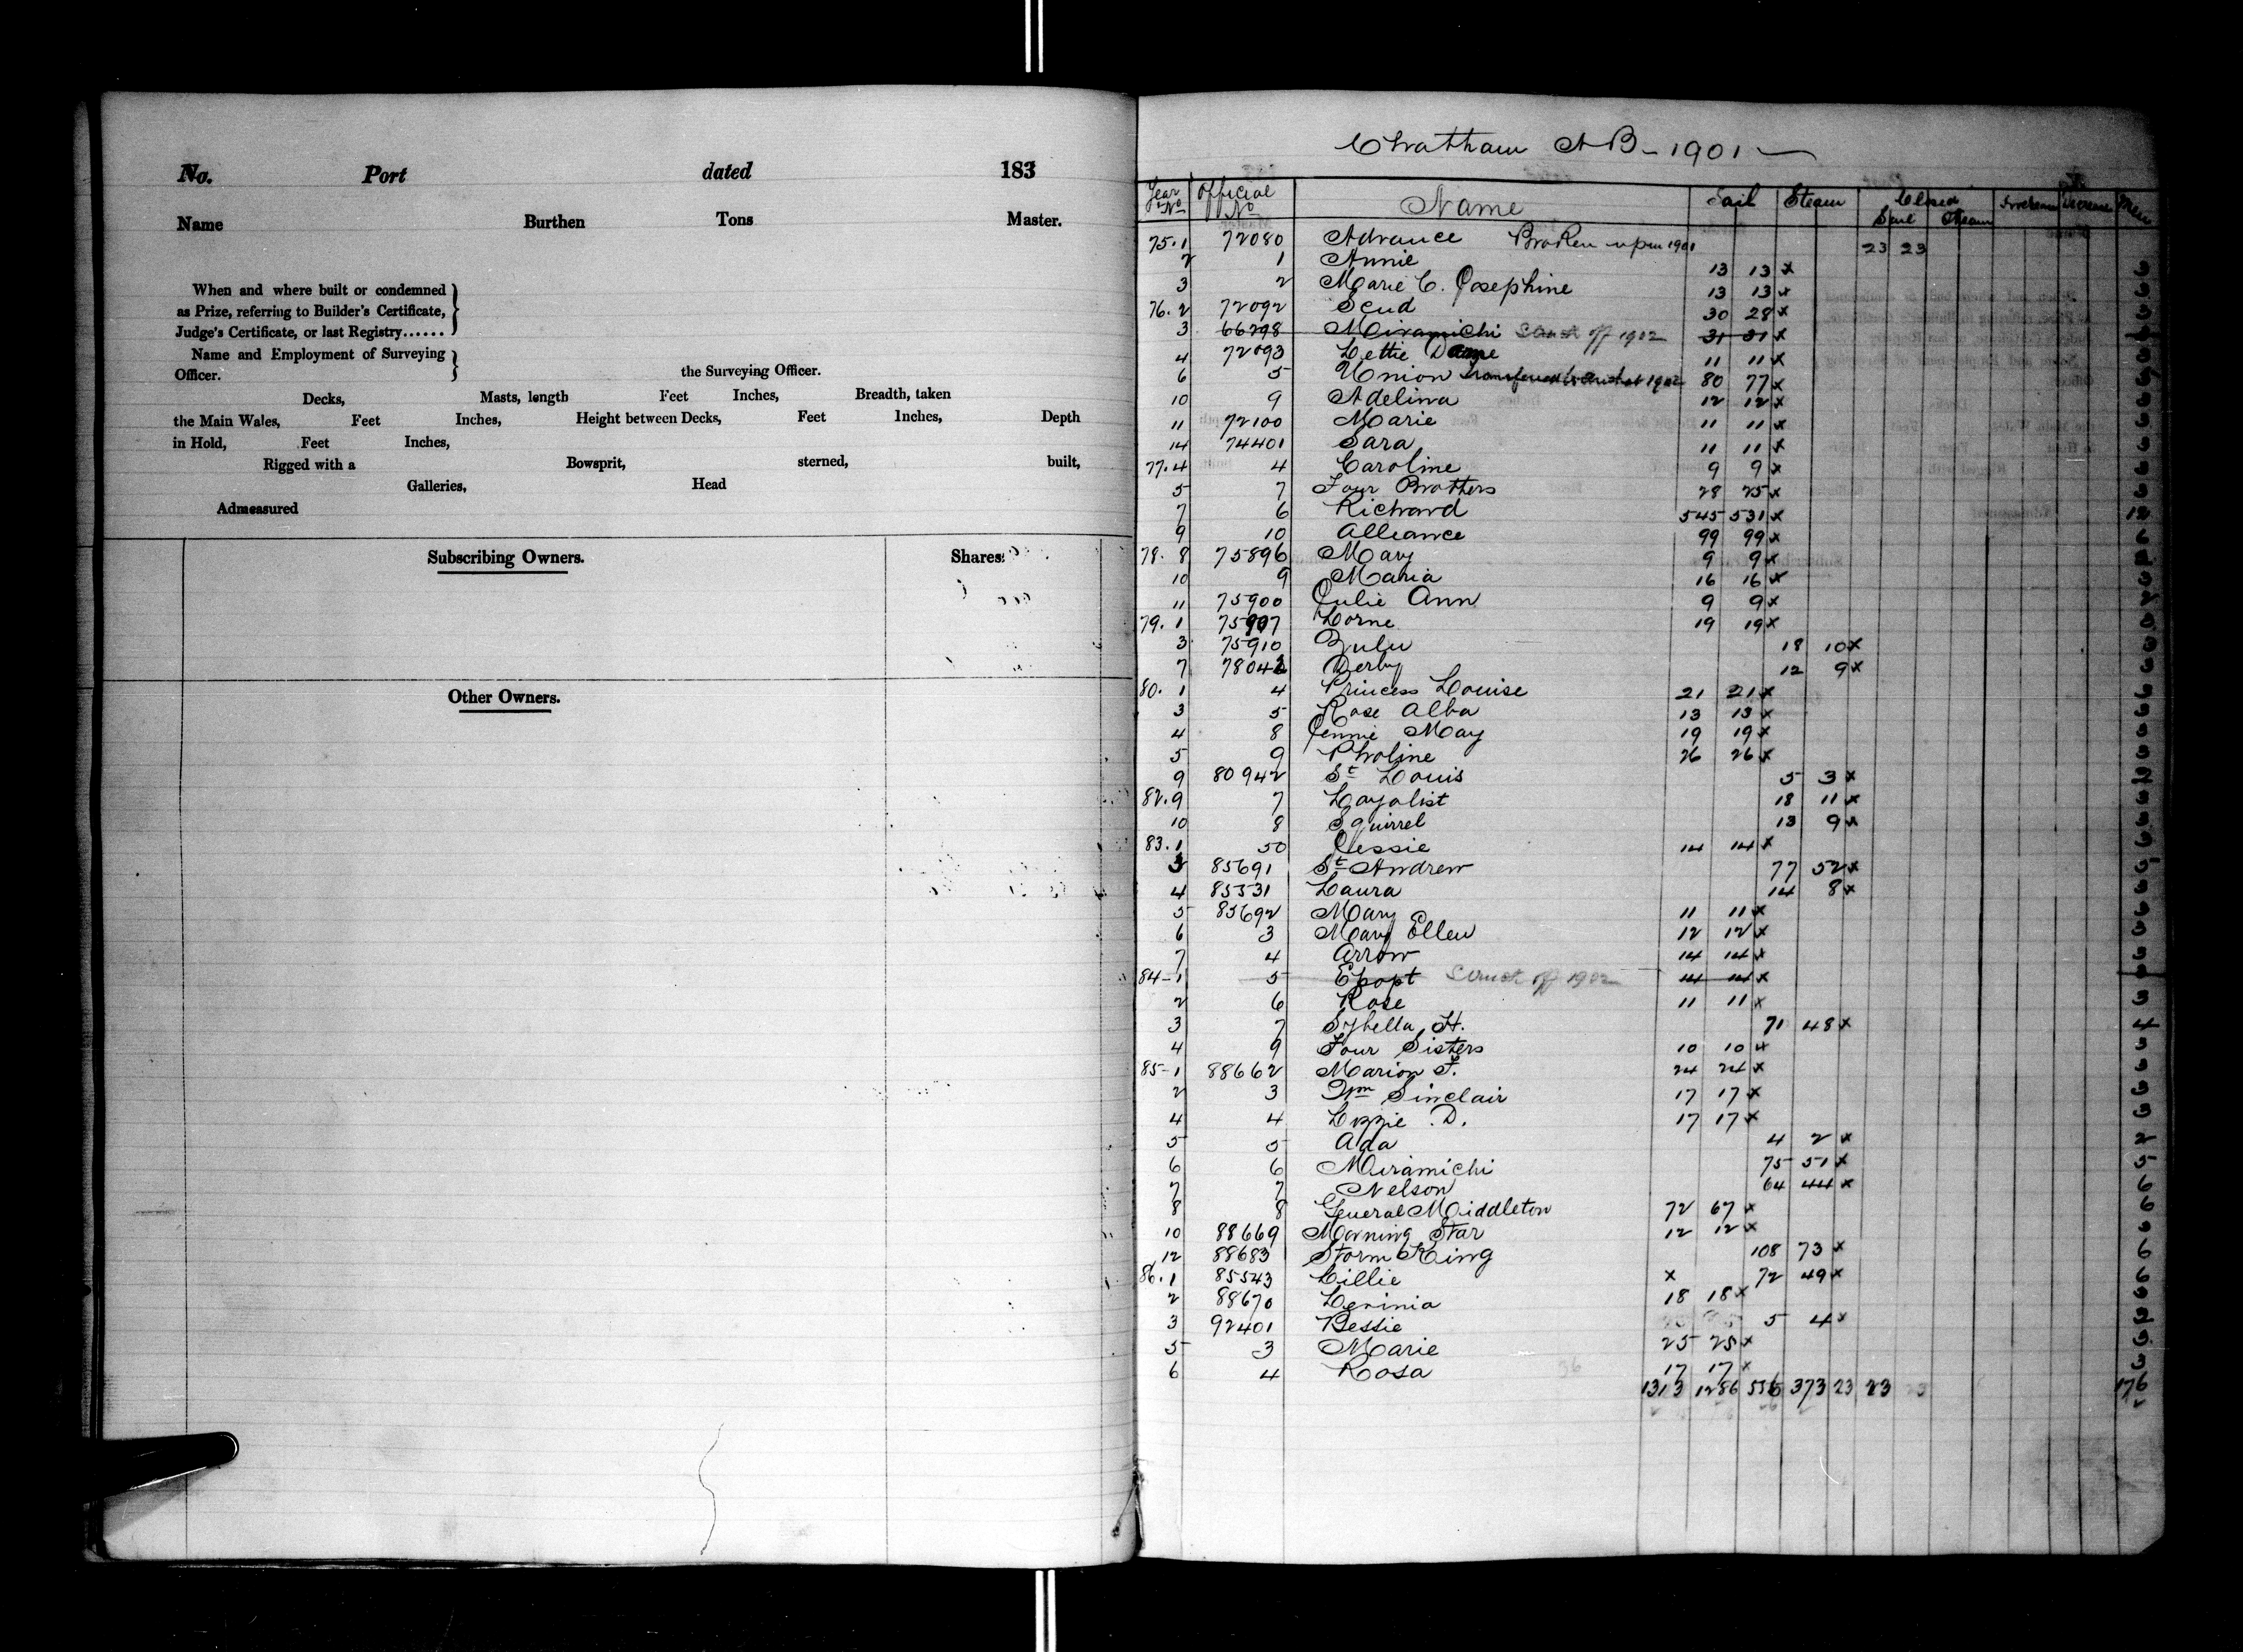 No. Port dated 183
Name Burthen Tons Master.
When and where built or condemned
as Prize, referring to Builder's Certificate,
Judge's Certificate, or last Registry......
Name and Employment of Surveying
Officer. the Surveying Officer.
Decks, Masts, length Feet Inches, Breadth, taken
the Main Wales, Feet Inches, Height between Decks, Feet Inches, Depth
in Hold, Feet Inches,
Rigged with a Bowsprit, sterned, built,
Galleries, Head
Admeasured
Subscribing Owners. Shares.
Other Owners.
Chatham NB - 1901
Year No Official No Name Sail Steam Closed Sail Steam Increase Decrease Men
75.1 72080 Advance Broken up in 1901 23 23
2 1 Annie 13 13 x 3
3 2 Marie C. Josephine 13 13 x 3
76.2 72092 Scud 30 28 x 3
3 66298 Miramichi Struck off 1902 31 31 x
4 72093 Lettie 11 11 x 3
6 5 Union transferred 1902 80 77 x
10 9 Adelina 12 12 x 3
11 72100 Marie 11 11 x 3
14 74401 Sara 11 11 x 3
77.4 4 Caroline 9 9 x 3
5 7 Four Brothers 28 25 x 3
7 6 Richard 545 531 x 12
9 10 Alliance 99 99 x
78.8 75896 Mary 9 9 x
10 9 Maria 16 16 x 3
11 75900 Julie Ann 9 9 x
79.1 75907 Lorne 19 19 x 3
3 75910 Zulu 18 10 x 3
7 78042 Derby 12 9 x 3
80.1 4 Princess Louise 21 21 x 3
3 5 Rose Alba 13 13 x 3
4 8 Jennie May 19 19 x 3
5 9 Pholine 26 26 x 3
9 80942 St Louis 5 3 x 2
82.9 7 Loyalist 18 11 x 3
10 8 Squirrel 13 9 x 3
83.1 50 Jessie 14 14 x 3
3 85691 St Andrew 77 52 x 5
4 85531 Laura 14 8 x 3
5 85692 Mary 11 11 x 3
6 3 Mary Ellen 12 12 x 3
7 4 Arrow 14 14 x 3
84-1 5 Epopt Struck off 1902 14 14 x
2 6 Rose 11 11 x 3
3 7 Sybella H. 71 48 x 4
4 9 Four Sisters 10 10 x 3
85-1 88662 Marion F. 24 24 x 3
2 3 Wm Sinclair 17 17 x 3
4 4 Lizzie D. 17 17 x 3
5 5 Ada 4 2 x 2
6 6 Miramichi 75 51 x 5
7 7 Nelson 64 44 x 6
8 8 General Middleton 72 67 x 6
10 88669 Morning Star 12 12 x 3
12 88683 Storm King 108 73 x 6
86.1 85543 Lillie x 72 49 x 6
2 88670 Levinia 18 18 x 3
3 92401 Bessie 5 4 x 2
5 3 Marie 25 25 x 3
6 4 Rosa 36 17 17 x 3
1313 1286 556 373 23 23 23 176